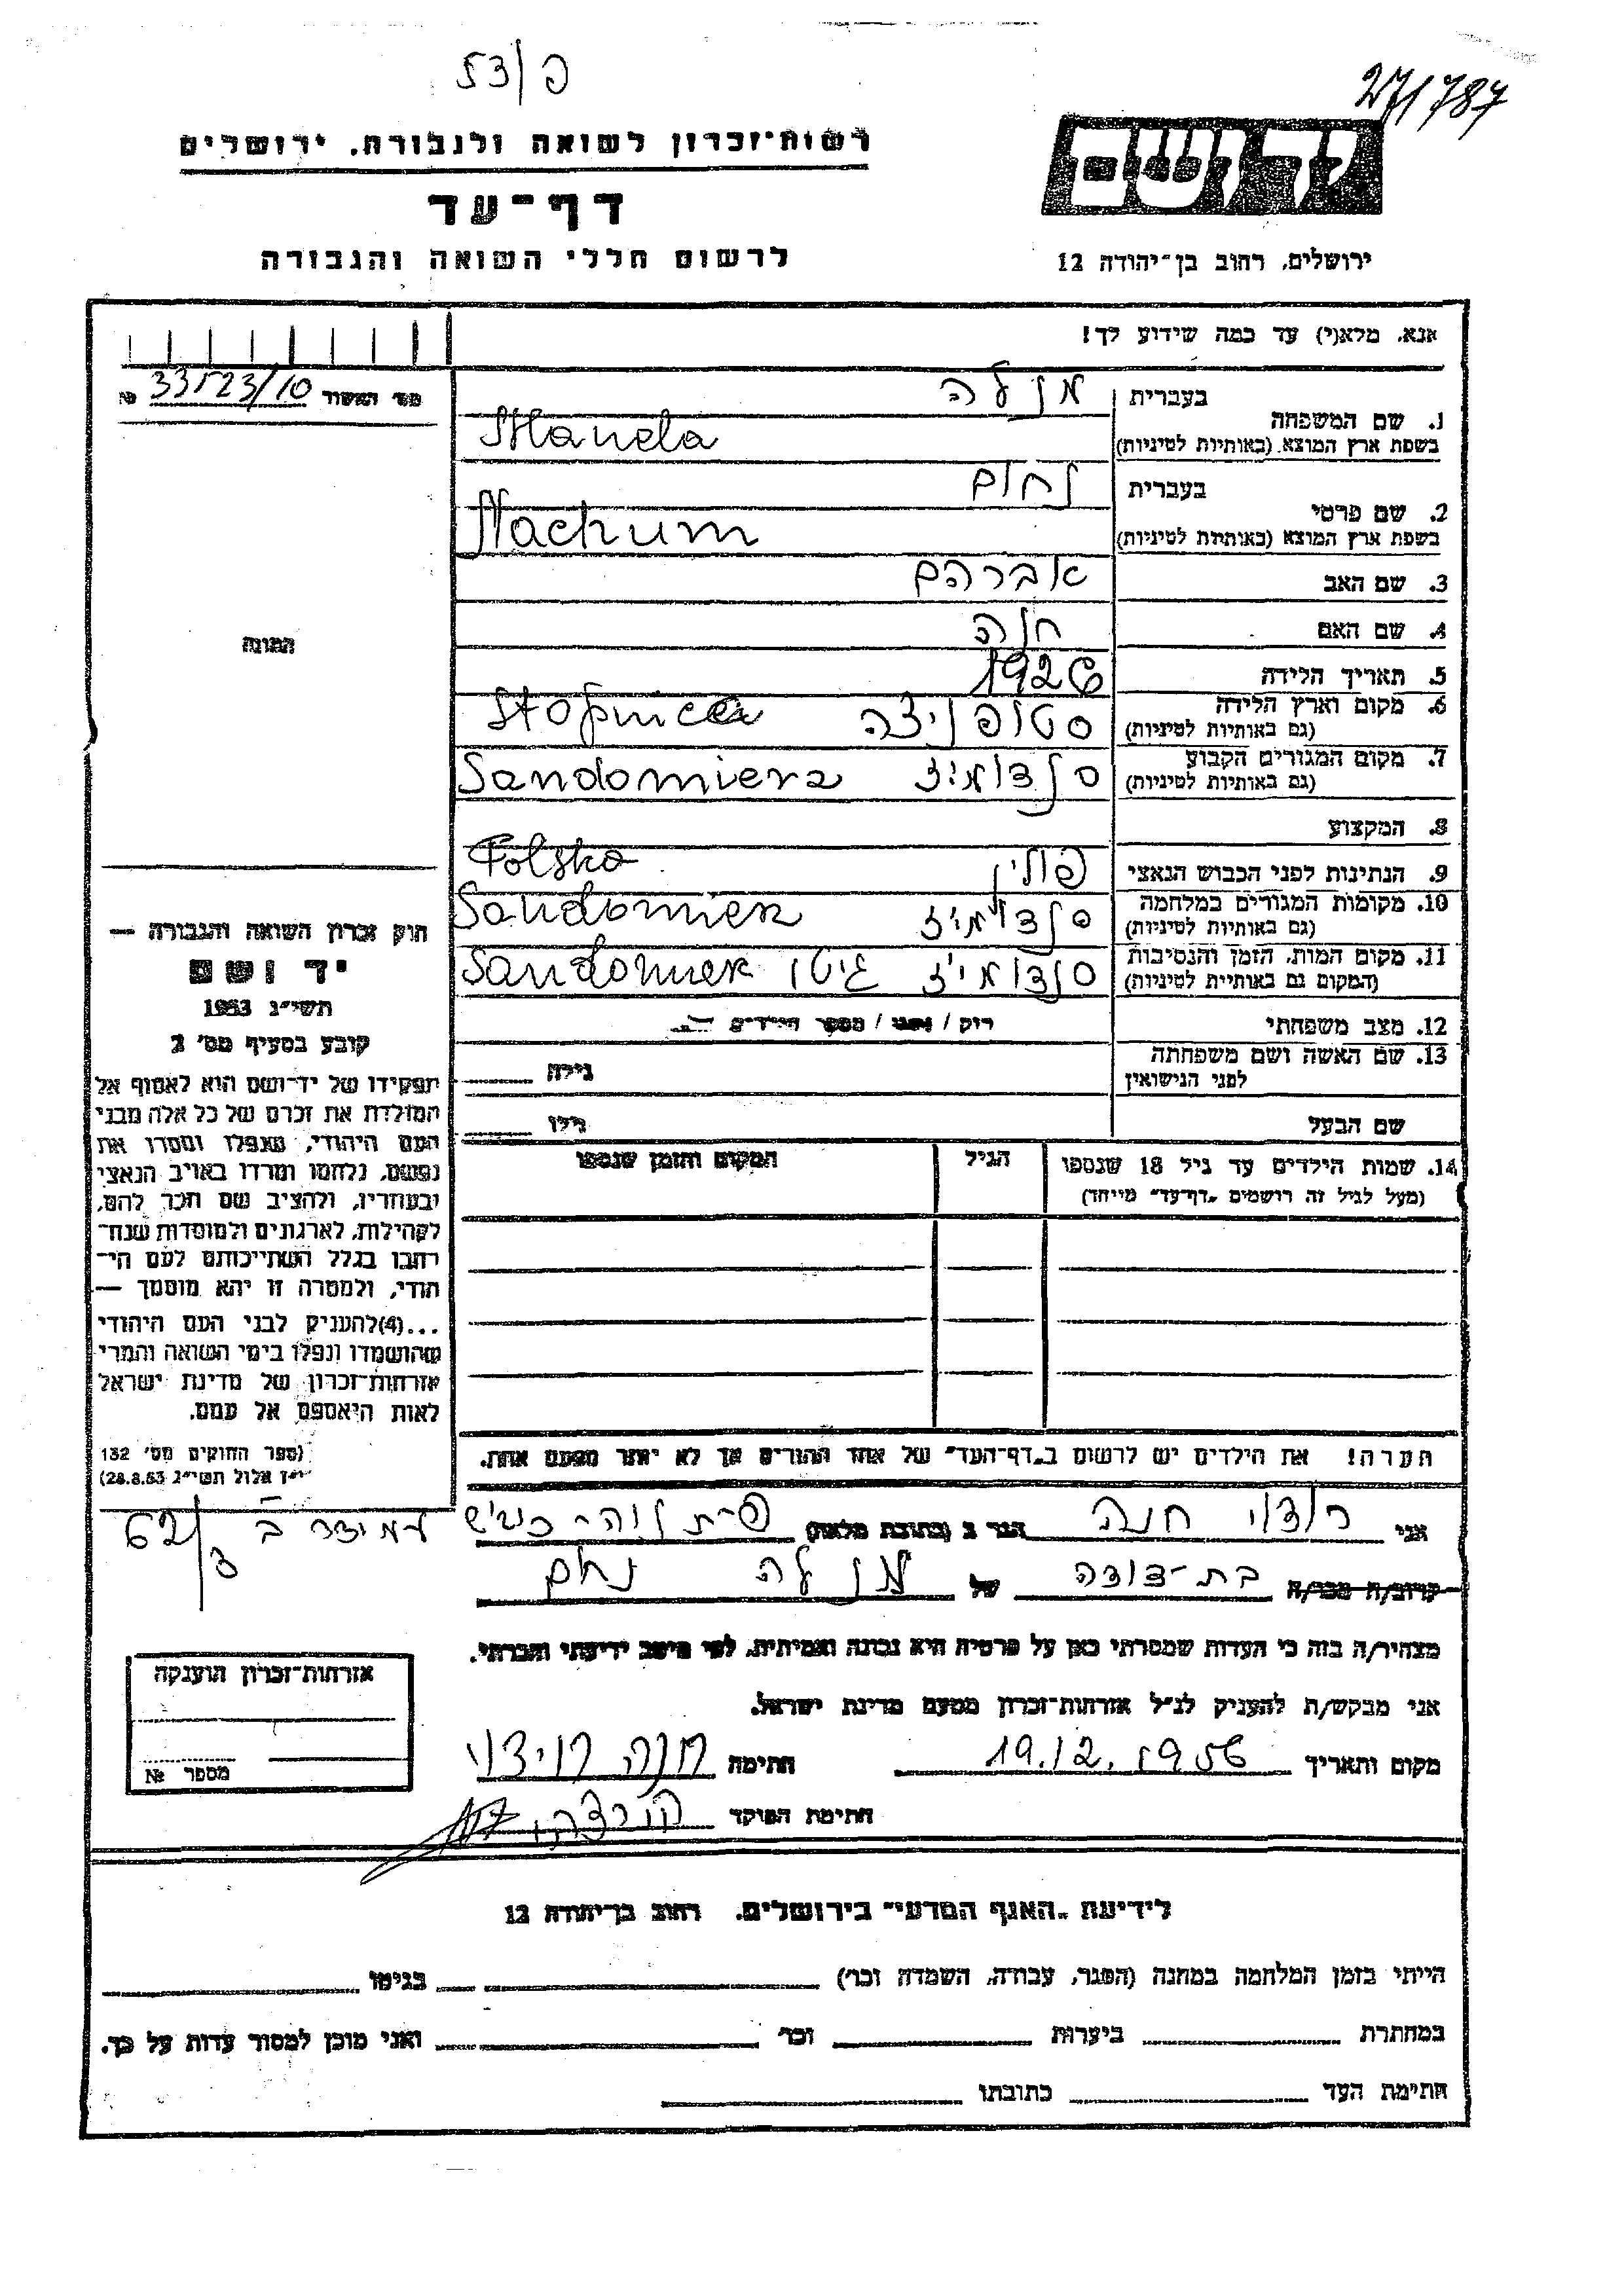 פ/53
27/787
רשות־זכרון לשואה ולגבורה, ירושלים
יד ושם
דף־עד
לרשום חללי השואה והגבורה
ירושלים, רחוב בן־יהודה 12
אנא, מלא(י) עד כמה שידוע לך!
מס׳ האשור 33523/10 №
1. שם המשפחה
בעברית מנלה
בשפת ארץ המוצא (באותיות לטיניות) Manela
2. שם פרטי
בעברית נחום
בשפת ארץ המוצא (באותיות לטיניות) Nachum
3. שם האב אברהם
4. שם האם חנה
5. תאריך הלידה 1926
6. מקום וארץ הלידה (גם באותיות לטיניות) סטופניצה Stopnica
7. מקום המגורים הקבוע (גם באותיות לטיניות) סנדומיז Sandomierz
8. המקצוע
9. הנתינות לפני הכבוש הנאצי פולין Polska
10. מקומות המגורים במלחמה (גם באותיות לטיניות) סנדומיז Sandomierz
11. מקום המות, הזמן והנסיבות (המקום גם באותיות לטיניות) סנדומיז גיטו Sandomierz
12. מצב משפחתי רוק / נשוי / מספר הילדים
13. שם האשה ושם משפחתה לפני הנישואין
גילה
שם הבעל
גילו
14. שמות הילדים עד גיל 18 שנספו
(מעל לגיל זה רושמים „דף־עד״ מייחד)
הגיל
המקום והזמן שנספו
הערה! את הילדים יש לרשום ב„דף־העד״ של אחד ההורים אך לא יותר מפעם אחת.
התמונה
חוק זכרון השואה והגבורה —
יד ושם
תשי״ג 1953
קובע בסעיף מס׳ 2
תפקידו של יד־ושם הוא לאסוף אל
המולדת את זכרם של כל אלה מבני
העם היהודי, שנפלו ומסרו את
נפשם, נלחמו ומרדו באויב הנאצי
ובעוזריו, ולהציב שם וזכר להם,
לקהילות, לארגונים ולמוסדות שנח־
רבו בגלל השתייכותם לעם הי־
הודי, ולמטרה זו יהא מוסמך —
...(4)להעניק לבני העם היהודי
שהושמדו ונפלו בימי השואה והמרי
אזרחות־זכרון של מדינת ישראל
לאות היאספם אל עמם.
(ספר החוקים מס׳ 132
י״ז אלול תשי״ג 28.8.53)
אני חנה הגר ב (כתובת מלאה) 62/3
קרוב/ה מכר/ה בת־דודה של מנלה נחום
מצהיר/ה בזה כי העדות שמסרתי כאן על פרטיה היא נכונה ואמיתית, לפי מיטב ידיעתי והכרתי.
אני מבקש/ת להעניק לנ״ל אזרחות־זכרון מטעם מדינת ישראל.
מקום ותאריך 19.12.1956 חתימה חנה
חתימת הפוקד
אזרחות־זכרון הוענקה
מספר №
לידיעת „האגף המדעי״ בירושלים, רחוב בן־יהודה 12
הייתי בזמן המלחמה במחנה (הסגר, עבודה, השמדה וכו׳) בגיטו
במחתרת ביערות וכו׳ ואני מוכן למסור עדות על כך.
חתימת העד כתובתו